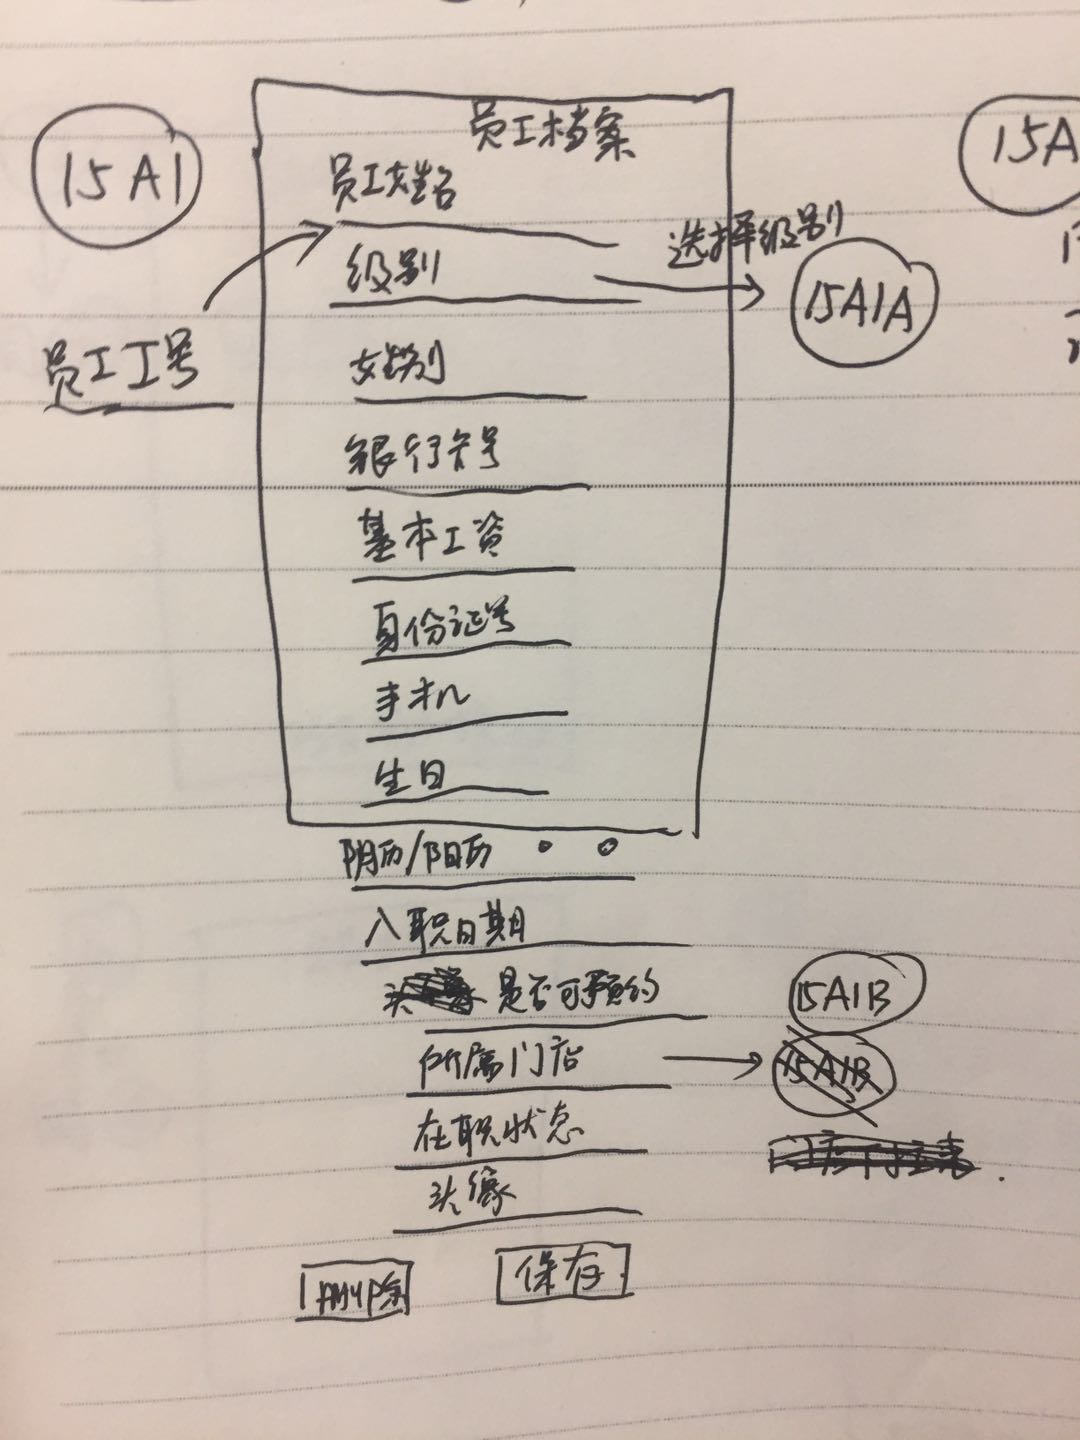 15A1
员工档案
15A
员工姓名
选择级别
级别
15A1A
员工工号
性别
银行卡号
基本工资
身份证号
手机
生日
阴历/阳历
入职日期
头
是否可预约
15A1B
所属门店
15A1B
在职状态
头像
保存